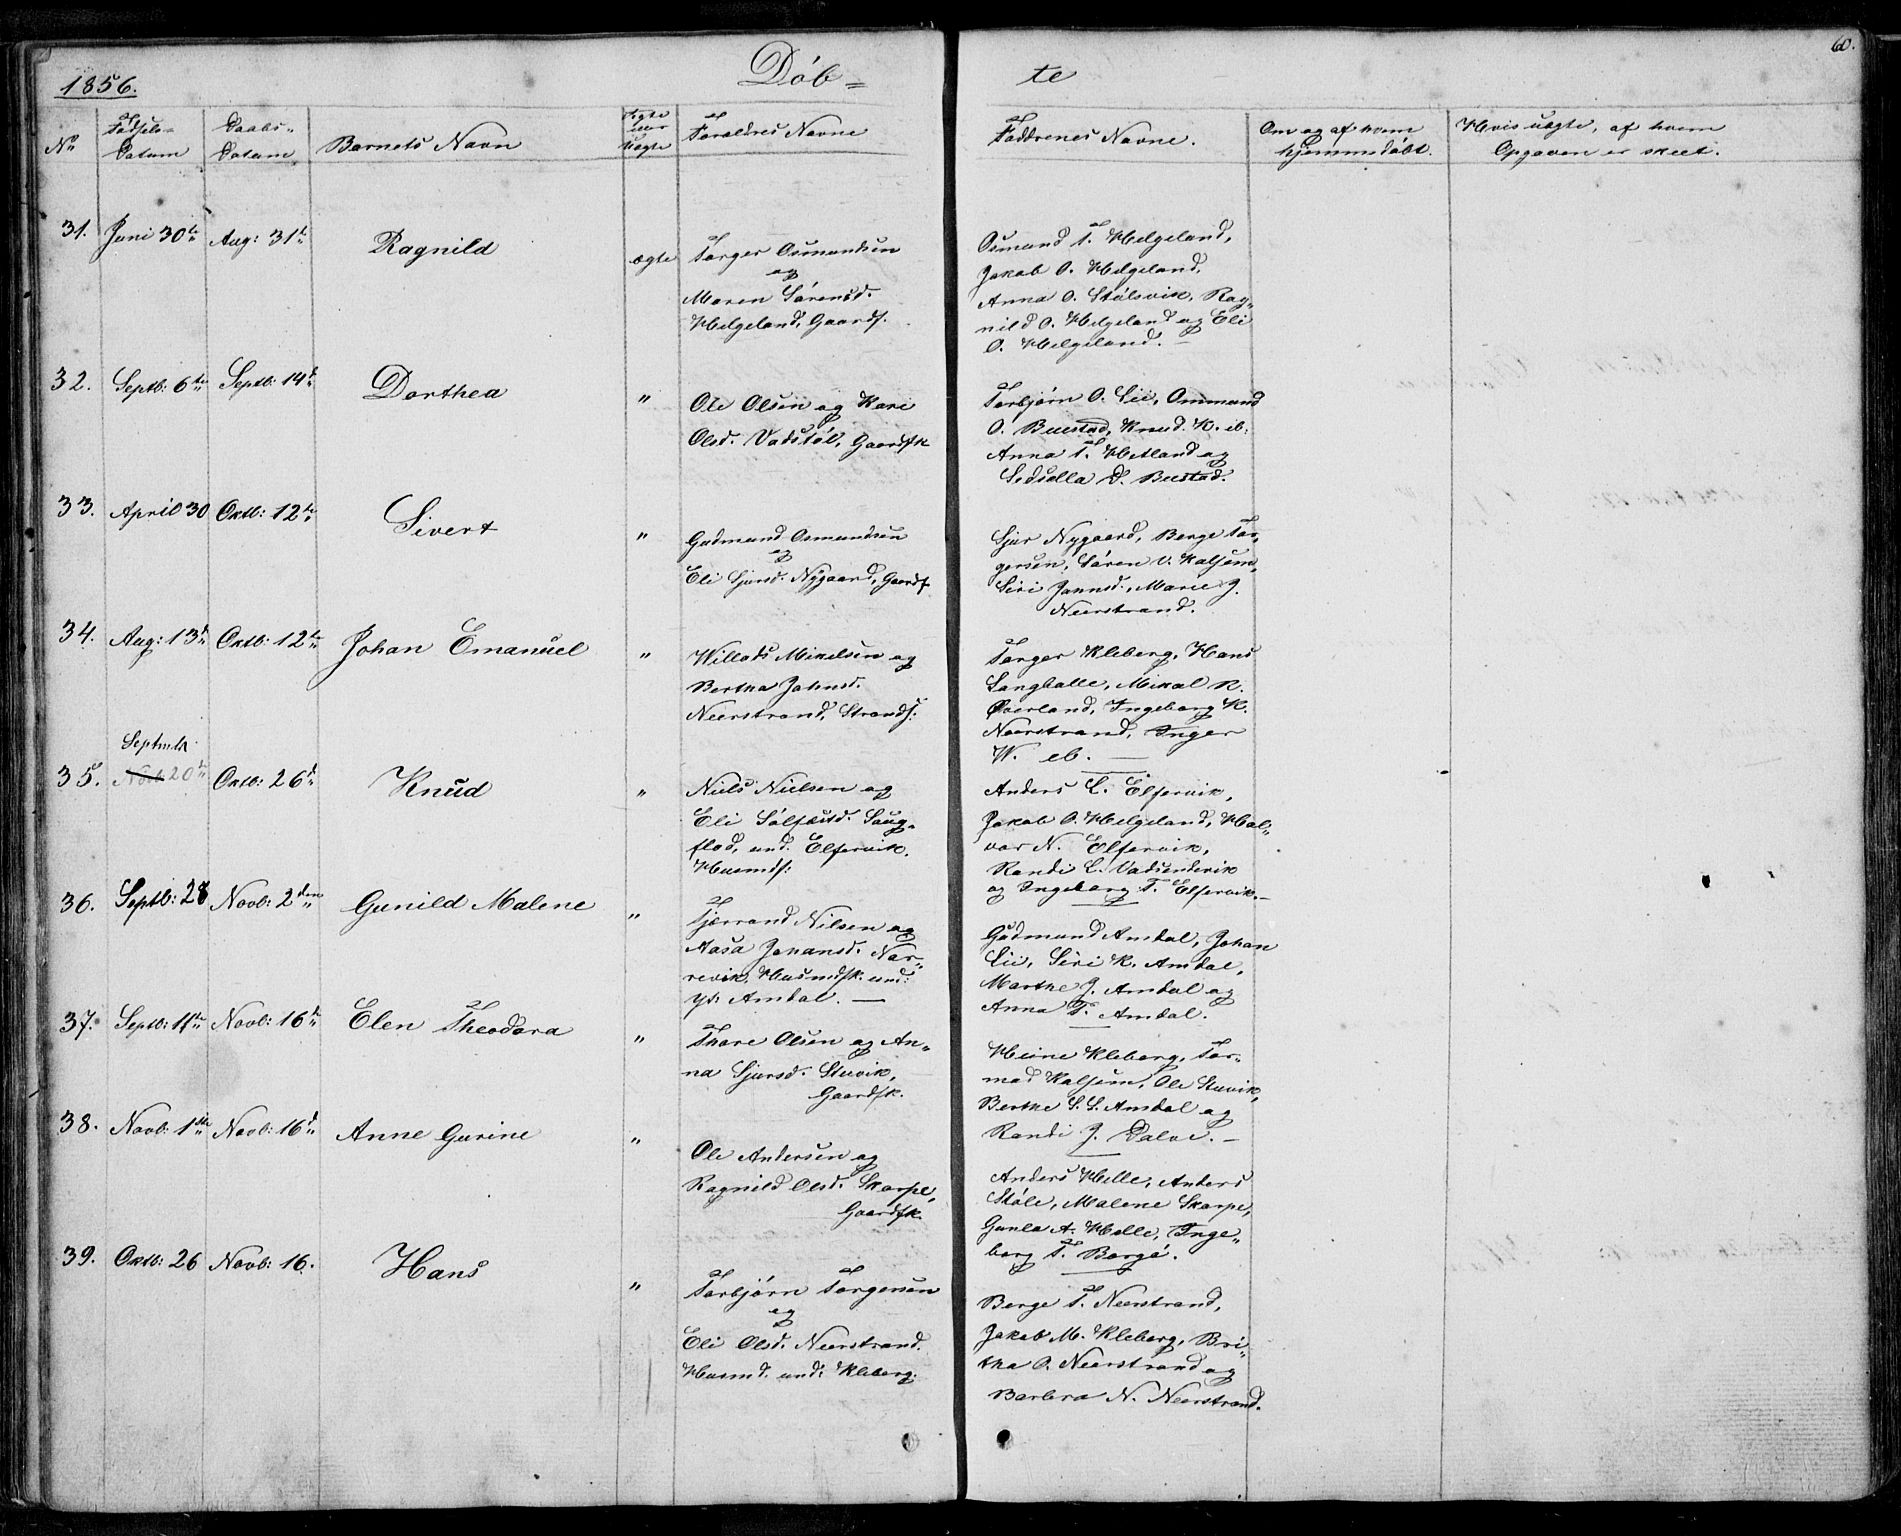 1856.
Döb=
te
60.
No
Fødsels-
Datum
Daabs-
Datum
Barnets Navn
Ægte
eller
Uægte
Forældres Navne
Faddrenes Navne.
Om og af hvem
hjemmedøbt.
Hvis uægte, af hvem
Opgaven er skeet.
31. Juni 30te Aug: 31te Ragnild ægte
Torger Osmundsen
og
Maren Sørensd.
Helgeland, Gaardf.
Osmund T. Helgeland,
Jakob O. Helgeland,
Anna O. Stølsvik, Rag=
nild O. Helgeland og Eli
O. Helgeland. —
32. Septb: 6te Septb: 14de Dorthea "
Ole Olsen og Kari
Olsd. Vadstøl, Gaardfk
Torbjørn O. Lii, Ommund
O. Buestad, Knud K. ib:
Anna T. Hetland og
Sedsella D. Bustad.
33. April 30 Oktb: 12te Sivert "
Gudmund Osmundsen
og
Eli Sjursd. Nygaard, Gaardf
Sjur Nygaard, Berge Tor=
gersen, Søren V. Kaltjem,
Siri Johnsd., Marie J.
Neerstrand.
34. Aug: 13de Oktb: 12te Johan Emanuel "
Willads Mikelsen og
Bertha Johnsd.
Neerstrand, Strands:
Torger Kleberg, Hans
Langballe, Mikal R.
Øverland, Ingeborg K.
Neerstrand, Inger
W. eb. —
Septmbr
35. Novb 20de Oktb: 26de Knud "
Niels Nielsen og
Eli Solfæstd. Saug=
flod, und. Elfervik.
Husmdf:
Anders L. Elfervik,
Jakob O. Helgeland, Hal=
vor N. Elfervik,
Randi L. Vadsendvik
og Ingeborg T. Elfervik. —
36. Septb: 28 Novb: 2den Gunild Malene "
Tjerrand Nilsen og
Aasa Johansd. Nor=
revik, Husmdfk. und:
yt: Amdal. —
Gudmund Amdal, Johan
Lii, Siri K. Amdal,
Marthe J. Amdal og
Anna T. Amdal.
37. Septb: 11te Novb: 16de Elen Theodora "
Thore Olsen og An=
na Sjursd. Stuvik,
Gaardfk.
Heine Kleberg, Tor=
mod Kaltjem, Ole Stuvik,
Berthe S. S. Amdal og
Randi J. Dalve. —
38. Novb: 1ste Novb: 16de Anne Gurine "
Ole Andersen og
Ragnild Olsd. Skarpe,
Gaardfk.
Anders Helle, Anders
Støle, Malene Skarpe,
Gunla A. Helle, Inge=
borg T. Borgø.
39. Oktb: 26 Novb: 16. Hans "
Torbjørn Torgersen
og
Eli Olsd. Neerstrand.
Husmd. und: Kleberg.
Berge T. Neerstrand,
Jakob M. Kleberg, Bri=
tha O. Neerstrand og
Barbra N. Neerstrand.